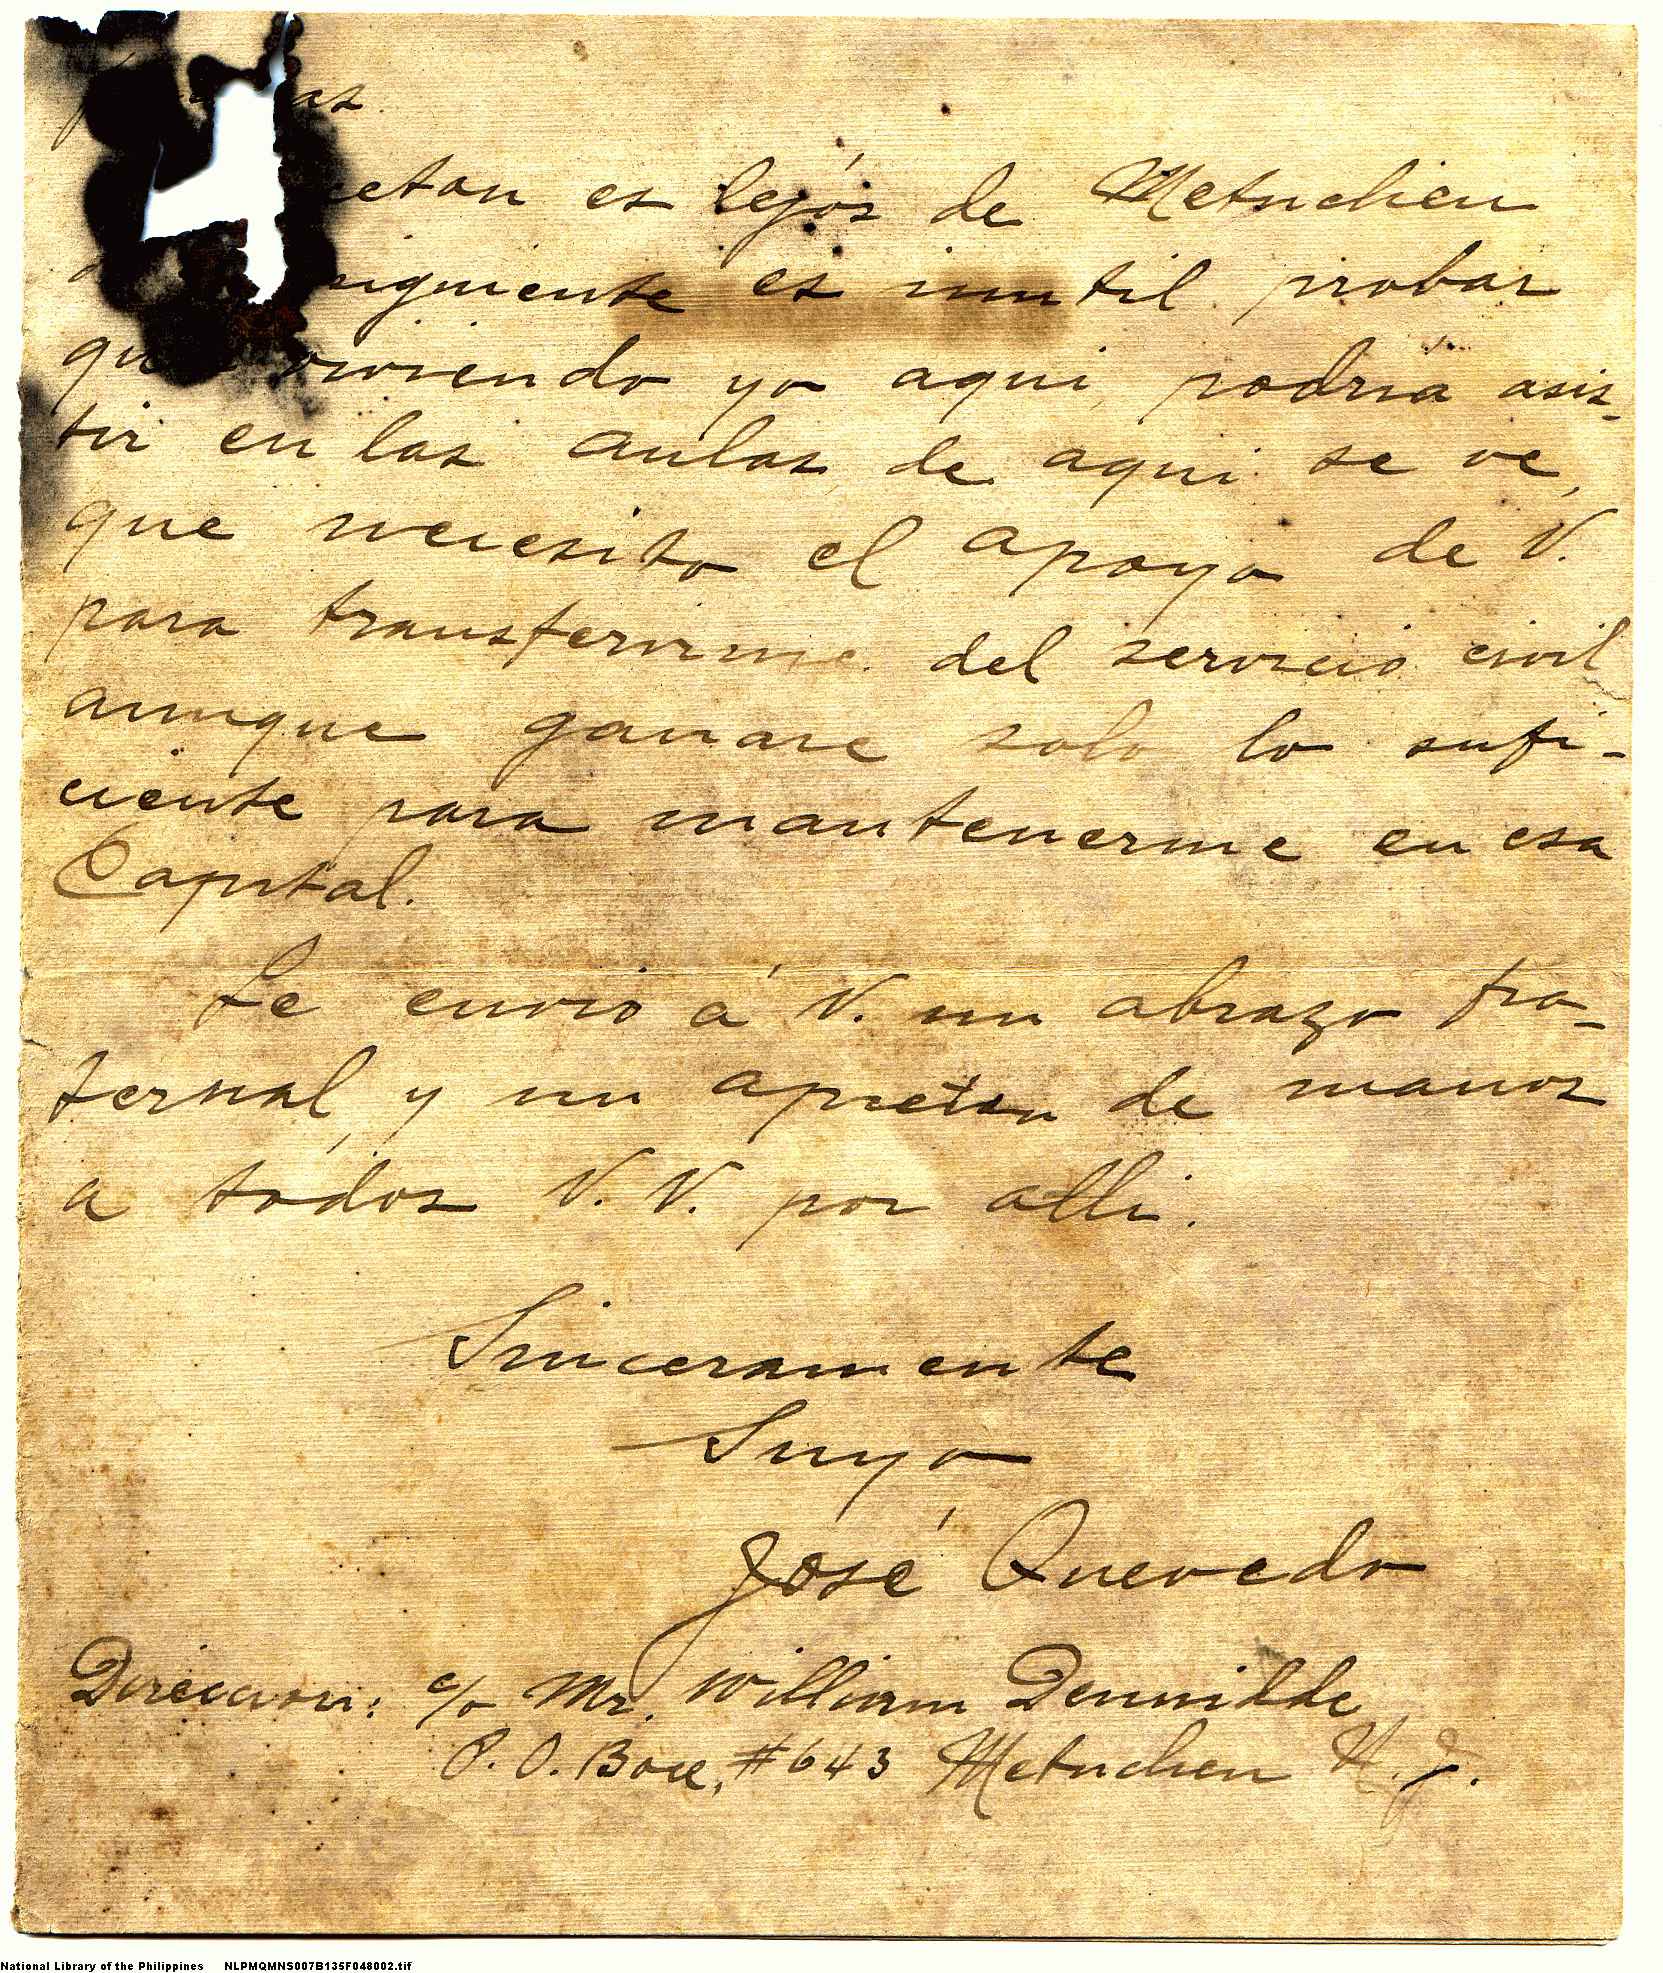 ceton es lejós de Metuchen
siguiente es inutil probar
que viviendo yo aqui, podria asis-
tir en las aulas de aqui. se ve,
que necesito el apoyo de V.
para transferirme del servicio civil
aunque ganare solo lo sufi-
ciente para mantenerme en esa
Capital.
Le envio á V. un abrazo fra-
ternal, y un apreton de manos
a todos V. V. por alli.
Sinceramente
Suyo
José Quevedo
Direccion: c/o Mr. William Dennilde
P. O. Box, #643 Metuchen N. J.
National Library of the Philippines NLPMQMNS007B135F048002.tif